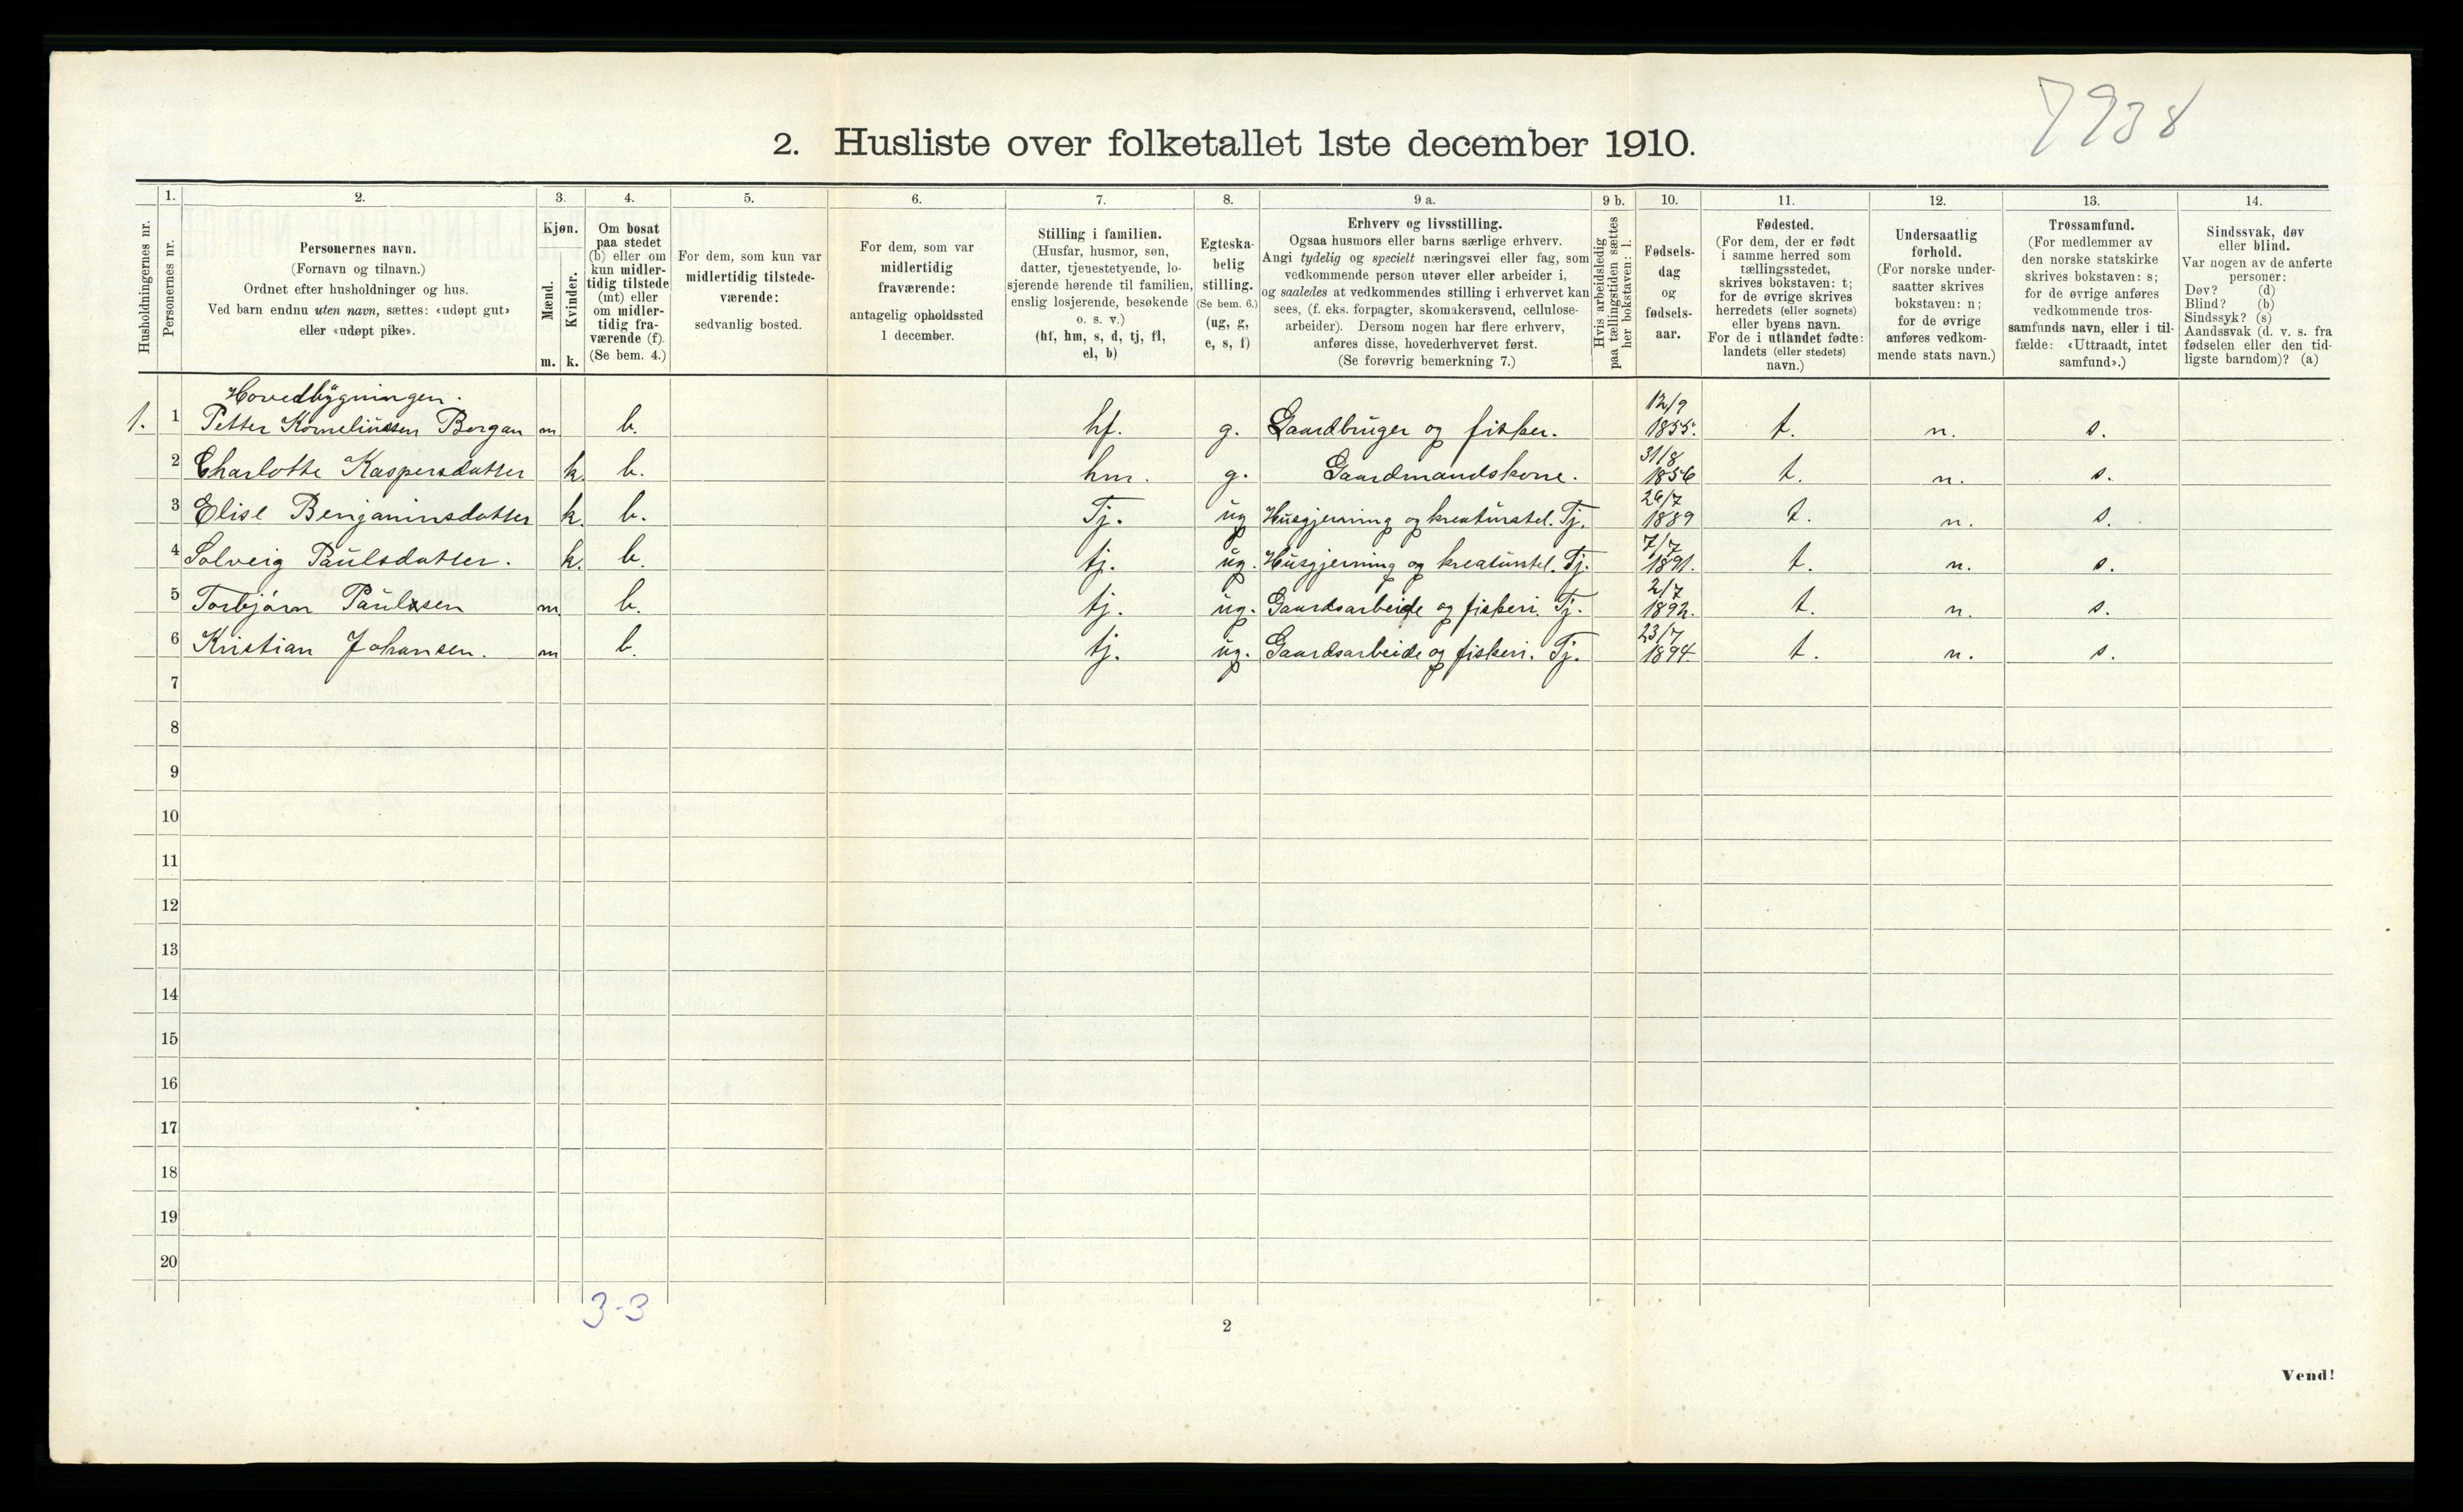 7938
2. Husliste over folketallet 1ste december 1910.
Husholdningernes nr.
1.
Personernes nr.
2.
Personernes navn.
(Fornavn og tilnavn.)
Ordnet efter husholdninger og hus.
Ved barn endnu uten navn, sættes: «udøpt gut»
eller «udøpt pike».
3.
Kjøn.
Mænd.
m.
Kvinder.
k.
4.
Om bosat
paa stedet
(b) eller om
kun midler-
tidig tilstede
(mt) eller
om midler-
tidig fra-
værende (f).
(Se bem. 4.)
5.
For dem, som kun var
midlertidig tilstede-
værende:
sedvanlig bosted.
6.
For dem, som var
midlertidig
fraværende:
antagelig opholdssted
1 december.
7.
Stilling i familien.
(Husfar, husmor, søn,
datter, tjenestetyende, lo-
sjerende hørende til familien,
enslig losjerende, besøkende
o. s. v.)
(hf, hm, s, d, tj, fl,
el, b)
8.
Egteska-
belig
stilling.
(Se bem. 6.)
(ug, g,
e, s, f)
9 a.
Erhverv og livsstilling.
Ogsaa husmors eller barns særlige erhverv.
Angi tydelig og specielt næringsvei eller fag, som
vedkommende person utøver eller arbeider i,
og saaledes at vedkommendes stilling i erhvervet kan
sees, (f. eks. forpagter, skomakersvend, cellulose-
arbeider). Dersom nogen har flere erhverv,
anføres disse, hovederhvervet først.
(Se forøvrig bemerkning 7.)
9 b.
Hvis arbeidsledig
paa tællingstiden sættes
her bokstaven: l.
10.
Fødsels-
dag
og
fødsels-
aar.
11.
Fødested.
(For dem, der er født
i samme herred som
tællingsstedet,
skrives bokstaven: t;
for de øvrige skrives
herredets (eller sognets)
eller byens navn.
For de i utlandet fødte:
landets (eller stedets)
navn.)
12.
Undersaatlig
forhold.
(For norske under-
saatter skrives
bokstaven: n;
for de øvrige
anføres vedkom-
mende stats navn.)
13.
Trossamfund.
(For medlemmer av
den norske statskirke
skrives bokstaven: s;
for de øvrige anføres
vedkommende tros-
samfunds navn, eller i til-
fælde: «Uttraadt, intet
samfund».)
14.
Sindssvak, døv
eller blind.
Var nogen av de anførte
personer:
Døv? (d)
Blind? (b)
Sindssyk? (s)
Aandssvak (d. v. s. fra
fødselen eller den tid-
ligste barndom)? (a)
Hovedbygningen.
1. 1 Petter Korneliussen Bergan m b. hf. g. Gaardbruger og fisker. 12/9 1855. t. n. s.
2 Charlotte Kaspersdatter k. b. hm. g. Gaardmandskone. 31/8 1856 t. n. s.
3 Elise Benjaminsdatter k. b. Tj. ug Husgjerning og kreaturstel. Tj. 26/7 1889 t. n. s.
4 Solveig Paulsdatter. k. b. tj. ug. Husgjerning og kreaturstel. Tj. 7/7 1891. t. n. s.
5 Torbjørn Paulsen m. b. tj. ug. Gaardsarbeide og fiskeri. Tj. 2/7 1892. t. n. s.
6 Kristian Johansen. m b. tj. ug. Gaardsarbeide og fiskeri. Tj. 23/7 1894. t. n. s.
7
8
9
10
11
12
13
14
15
16
17
18
19
20
3-3
2
Vend!